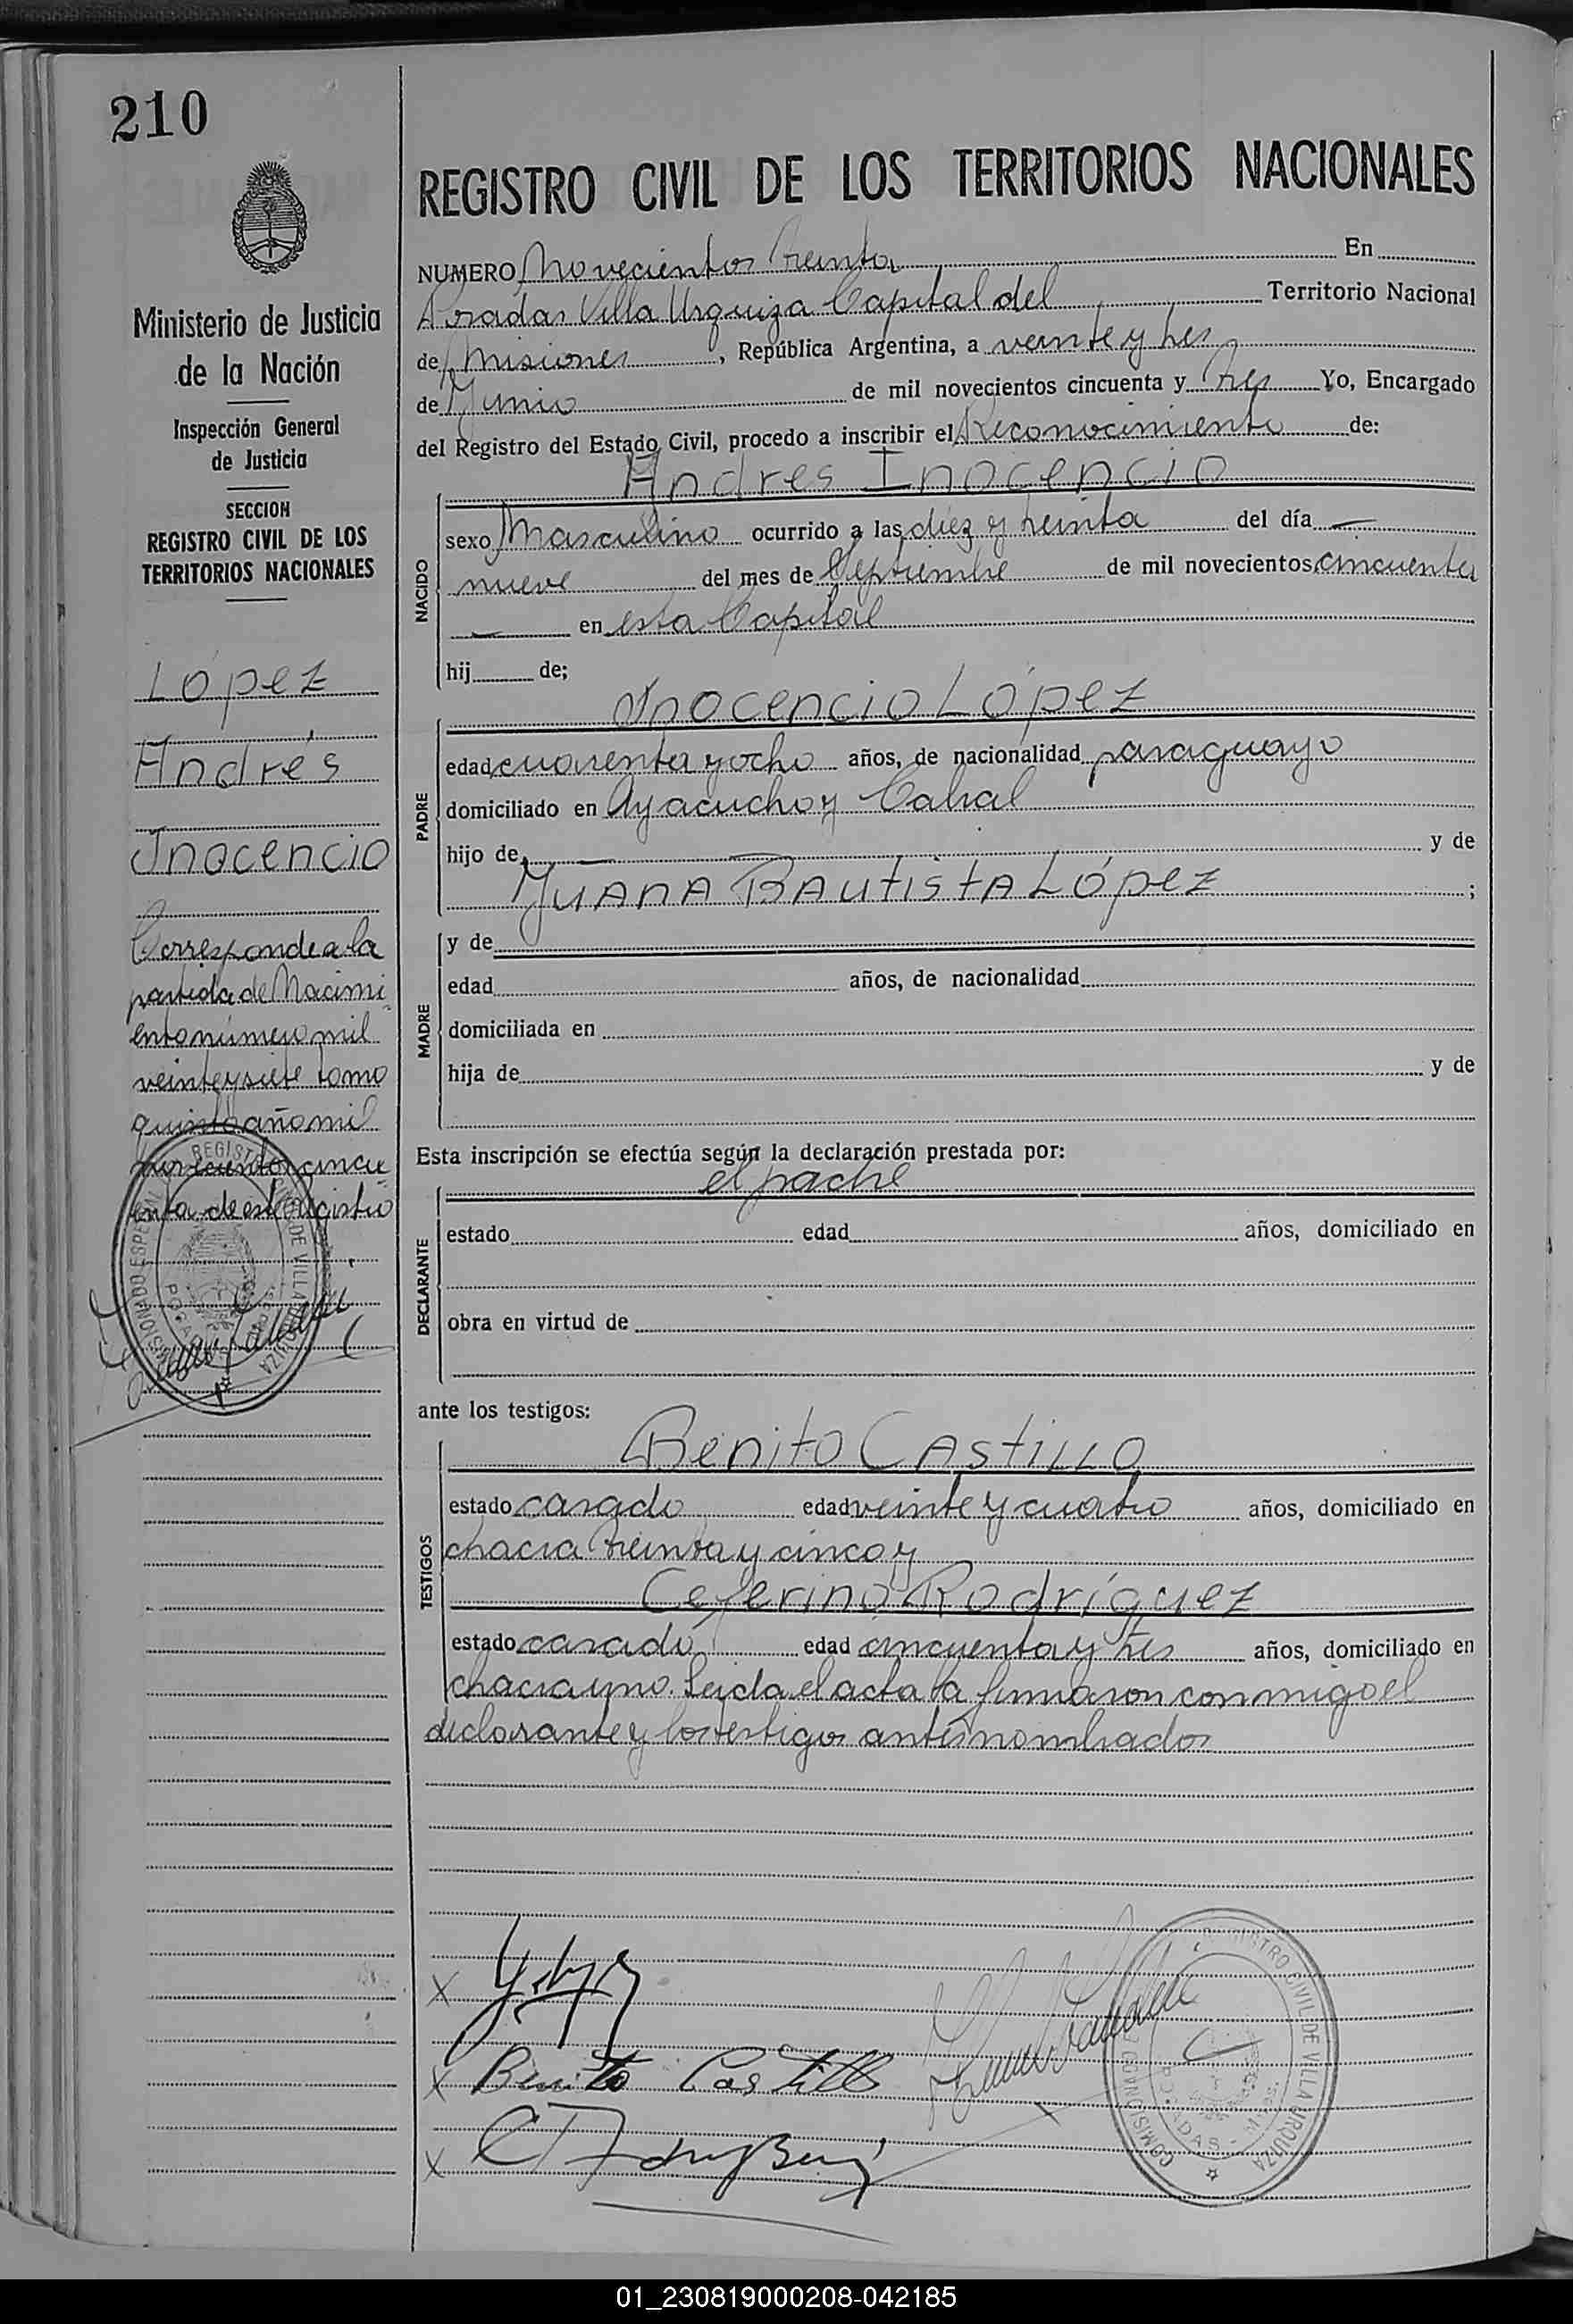 210
Ministerio de Justicia
de la Nación
Inspección General
de Justicia
SECCION
REGISTRO CIVIL DE LOS
TERRITORIOS NACIONALES
López
Andrés
Inocencio
Corresponde a la
partida de Nacimi
ento número mil
veinte y siete tomo
quinto año mil
novecientos cincu
enta de este Registro
REGISTRO CIVIL DE LOS TERRITORIOS NACIONALES
NUMERO Novecientos treinta En
Posadas Villa Urquiza Capital del Territorio Nacional
de Misiones, República Argentina, a veinte y tres
de Junio de mil novecientos cincuenta y tres Yo, Encargado
del Registro del Estado Civil, procedo a inscribir el Reconocimiento de:
Andres Inocencio
NACIDO
sexo Masculino ocurrido a las diez y treinta del día —
nueve del mes de Septiembre de mil novecientos cincuenta
— en esta Capital
hij de;
Inocencio López
PADRE
edad cuarenta y ocho años, de nacionalidad paraguayo
domiciliado en Ayacucho y Cabral
hijo de — y de
Juana Bautista López ;
MADRE
y de
edad años, de nacionalidad
domiciliada en
hija de y de
Esta inscripción se efectúa según la declaración prestada por:
el padre
DECLARANTE
estado edad años, domiciliado en
obra en virtud de
ante los testigos:
Benito Castillo
TESTIGOS
estado casado edad veinte y cuatro años, domiciliado en
chacra treinta y cinco y
Ceferino Rodríguez
estado casado edad cincuenta y tres años, domiciliado en
chacra uno. Leida el acta la firmaron conmigo el
declarante y los testigos antes nombrados
X
X Benito Castillo
X
REGISTRO CIVIL DE VILLA URQUIZA
POSADAS
01_230819000208-042185